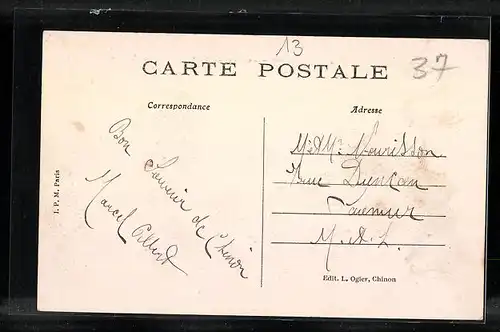 13
37
CARTE POSTALE
Correspondance
Adresse
Bon
Souvenir de Chinon
Marcel Albert
Mr & Mme
Rue Duncan
Saumur
M. & L.
I. P. M. Paris
Edit. L. Ogier, Chinon